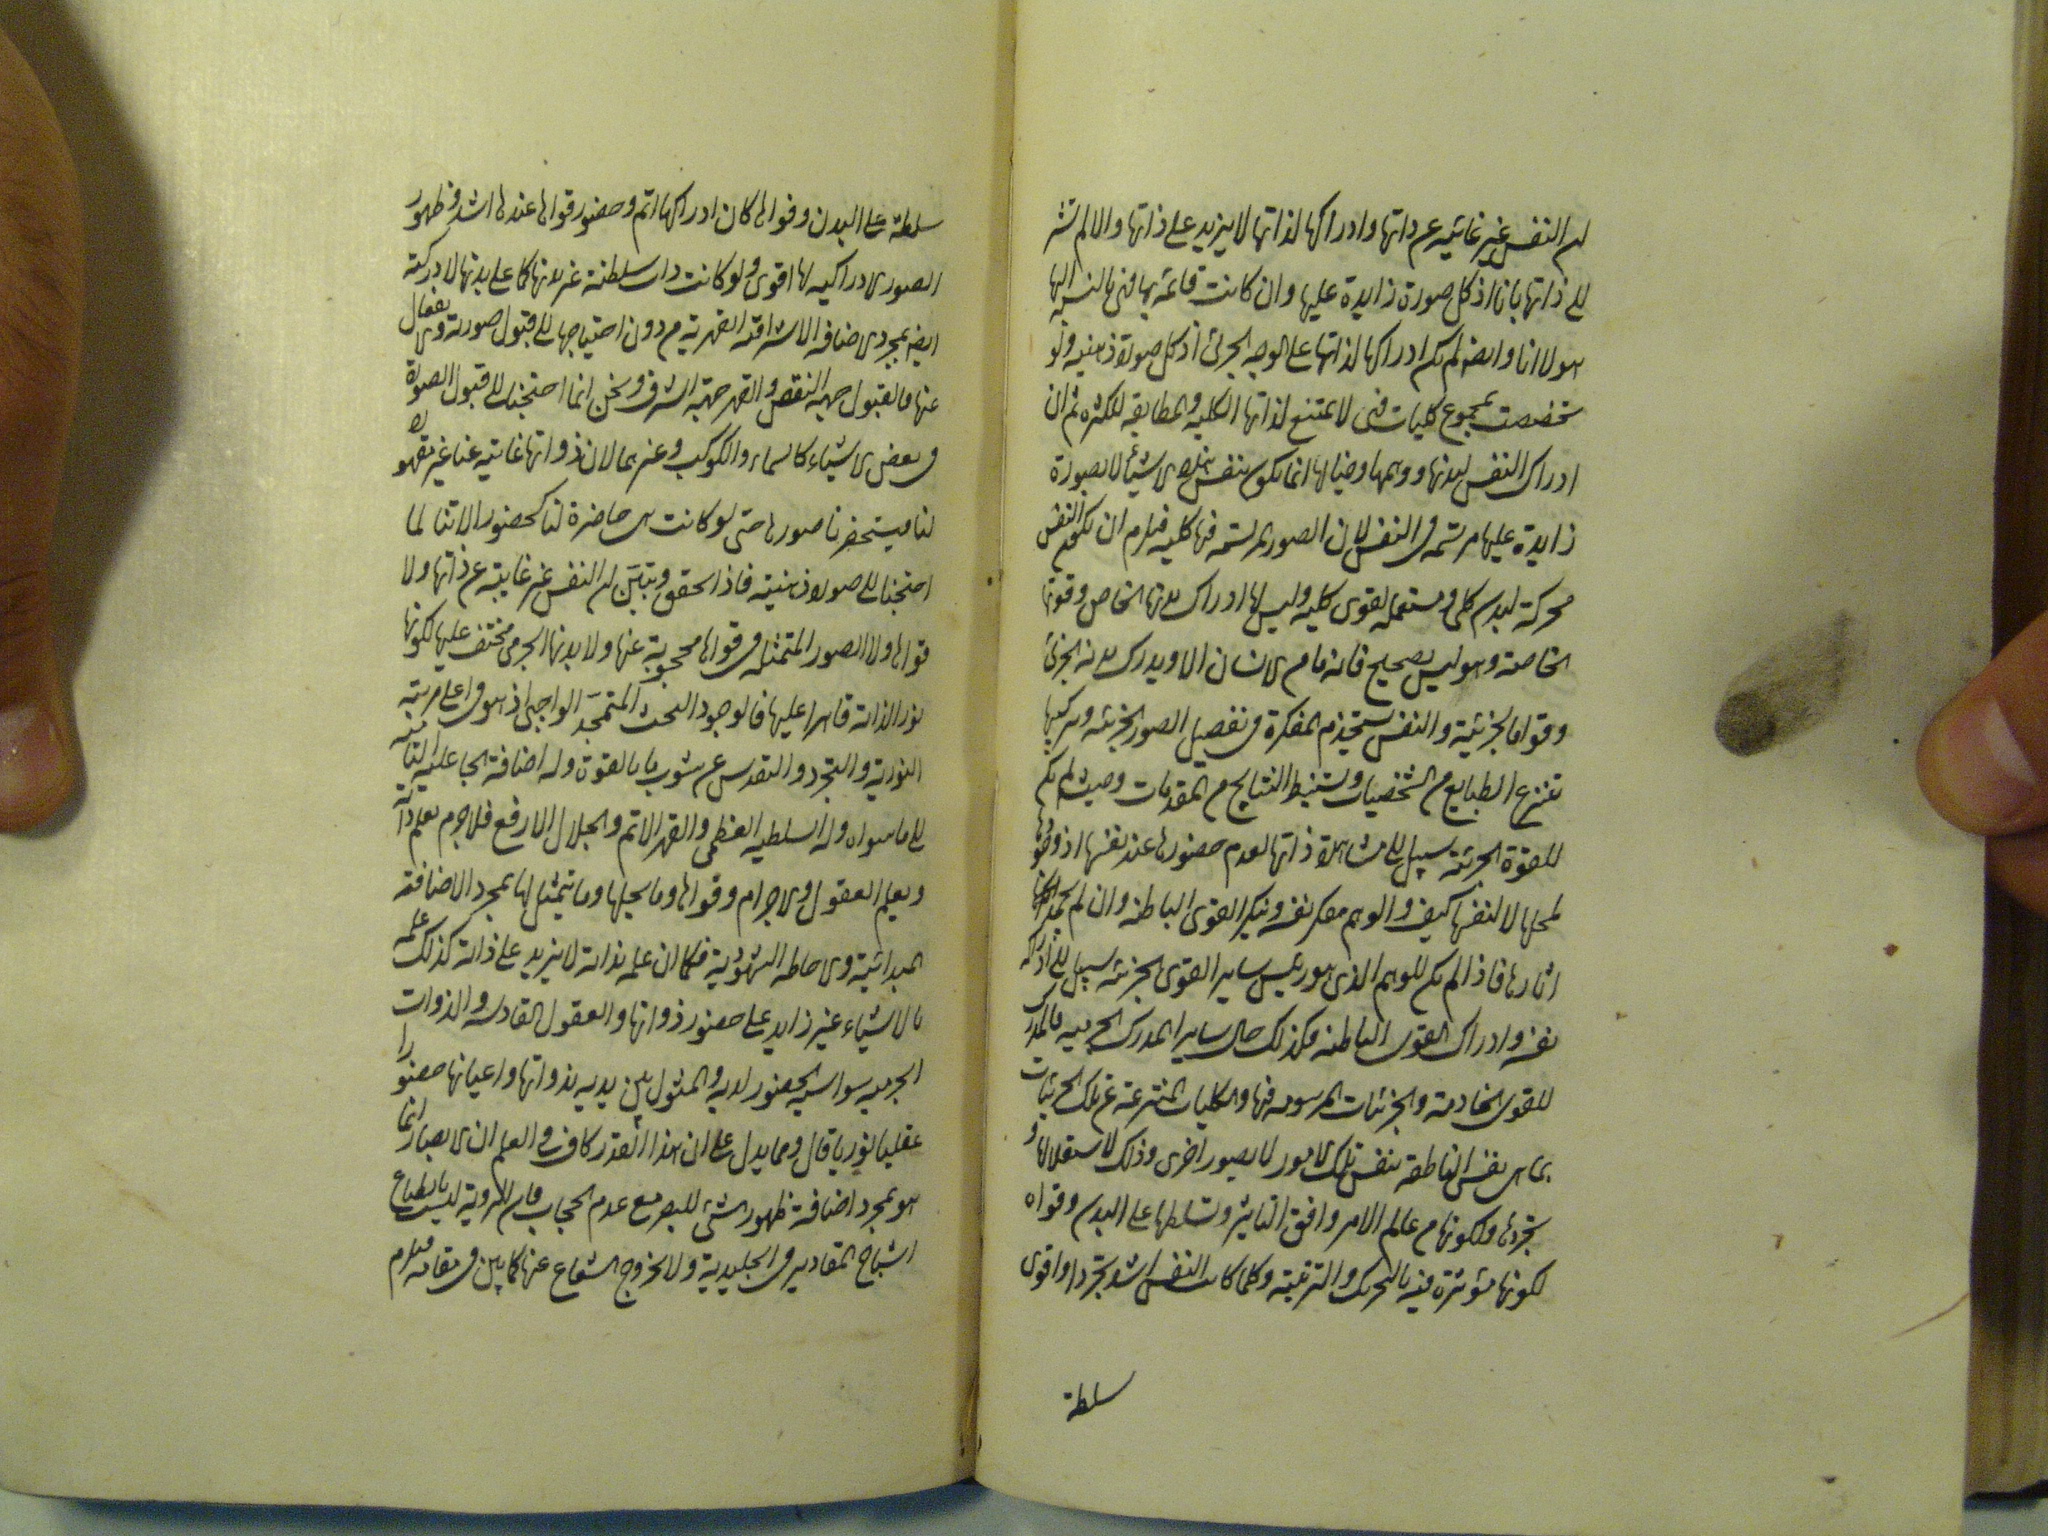 ان النفس غير غائبة عن ذاتها وادراكها لذاتها لا يزيد على ذاتها والا لم تشر
الى ذاتها بانا اذ كل صورة زايدة عليها وان كانت قائمة بها فهى بالنسبة اليها
هو لا انا وايضا لم يكن ادراكها لذاتها على الوجه الجزئى اذ كل صورة ذهنية ولو
تخصصت بمجموع كليات فهى لا يمتنع لذاتها الكلية والمطابقة للكثرة ثم ان
ادراك النفس لبدنها ووهمها وخيالها انما يكون بنفس هذه الاشياء لا بصورة
زايدة عليها مرتسمة فى النفس لان الصور المرتسمة فيها كلية فيلزم ان يكون النفس
محركة لبدن كلى ومستعملة لقوى كلية وليس لها ادراك بدنها الخاص وقوتها
الخاصة وهو ليس بصحيح فانه ما من الانسان الا ويدرك بدنه الجزئى
وقواه الجزئية والنفس تستخدم المفكرة فى تفصيل الصور الجزئية وتركيبها
تنتزع الطبايع من الشخصيات وتستنبط النتايج من المقدمات وحيث لم يكن
للقوة الجزئية سبيل الى مشاهدة ذاتها لعدم حضورها عند نفسها اذ وجودها
لمحلها لا لنفسها كيف والوهم ينكر نفسه وينكر القوى الباطنة وان لم يجحد
اثارها فاذا لم يكن للوهم الذى هو رئيس ساير القوى الجزئية سبيل الى ادراك
نفسه وادراك القوى الباطنة فكذلك حال ساير المدارك الجزئية فالمدرك
للقوى الخادمة والجزئيات المرسومة فيها والكليات المنتزعة عن تلك الجزئيات
بما هى نفس الناطقة بنفس تلك الامور لا بصور اخرى وذلك لاستقلالها و
تجردها ولكونها من عالم الامر وافق التاثير وتسلطها على البدن وقواه
لكونها مؤثرة فيه بالتحريك والترقية وكلما كانت النفس اشد تجردا واقوى
سلطة
سلطة على البدن وقواها كان ادراكها اتم وحضور قواها عندها اشد وظهور
الصور الادراكية لها اقوى ولو كانت ذات سلطنة على غير بدنها كما على بدنها لادركته
ايضا بمجرد الاضافة الاشراقية القهرية من دون احتياجها الى قبول صورته والانفعال
عنها فالقبول جهة النقص والقهر جهة الشرف ونحن انما احتجنا الى قبول الصورة
فى بعض الاشياء كالسماء والكوكب وغيرهما لان ذواتها غائبة عنا غير مقهورة
لنا فيستحضرنا صورها حتى لو كانت هى حاضرة لنا كحضور الاتنا لما
احتجنا الى صورة ذهنية فاذا تحقق وتبين ان النفس غير غايبة عن ذاتها ولا
قواها ولا الصور المتمثلة فى قواها محجوبة عنها ولا بدنها الجرمى مختف عليها لكونها
نور الذاته قاهرا عليها فالوجود البحت المتمجد الواجبى اذ هو فى اعلى مرتبة
النورية والتجرد والتقدس عن شوب ما بالقوة وله اضافة الجاعلية التامة
الى ما سواه وله السلطنة العظمى والقهر الاتم والجلال الارفع فلا جرم يعلم ذاته
ويعلم العقول والاجرام وقواها وما يحلها وما يتمثل لها بمجرد الاضافة
المبدائية والاحاطة الشهودية فكما ان علمه بذاته لا يزيد على ذاته كذلك علمه
بالاشياء غير زايد على حضور ذواتها والعقول القادسة والذوات
الجرمية سواسية الحضور لديه والمثول بين يديه بذواتها واعيانها حضورا
عقليا نوريا قال ومما يدل على ان هذا القدر كاف فى العلم ان الابصار انما
هو بمجرد اضافة ظهور الشئ للبصر مع عدم الحجاب فان الروية ليست بانطباع
اشباح المقادير فى الجليدية ولا بخروج الشعاع عنها كما بين فى مقامه فيلزم